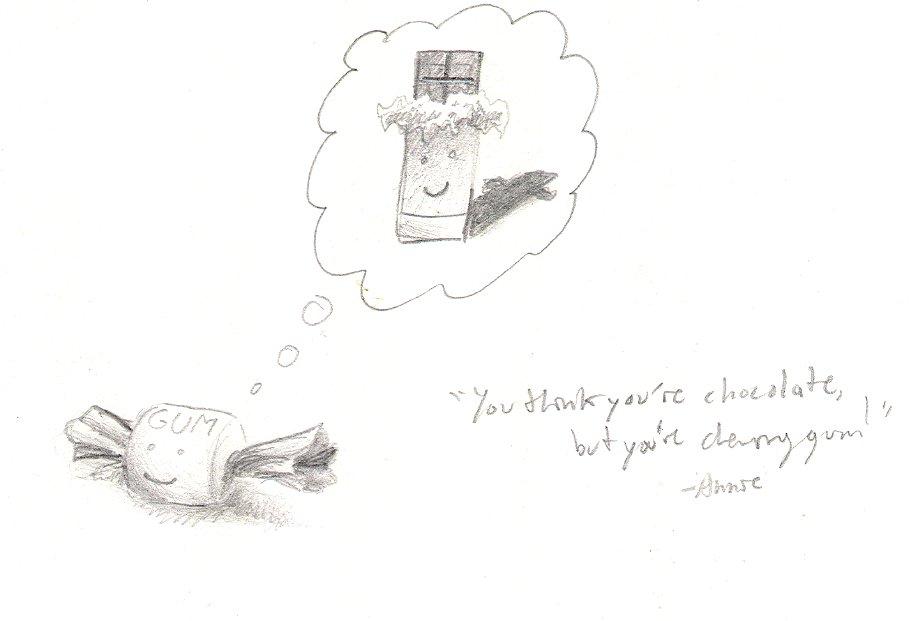 GUM
"You think you're chocolate,
but you're chewing gum!"
-Annie